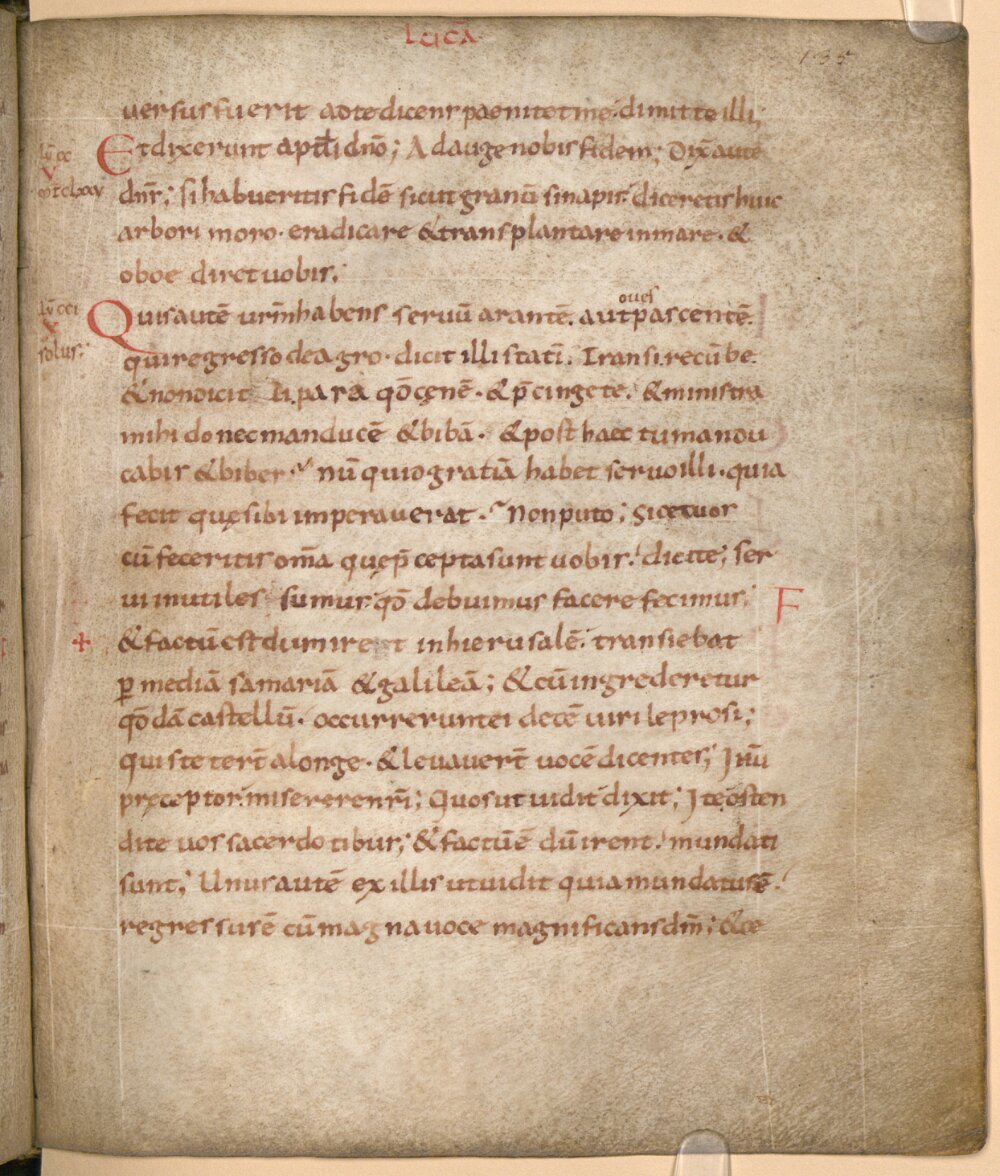 LUCĀ
135
versus fuerit ad te dicens paenitet me. dimitte illi;
lv̄ cc
Et dixerunt aptłi dn̄o; Adauge nobis fidem; Dix̄ autē
v
mt clxxv
dn̄s; si habueritis fidē sicut granū sinapis. diceretis huic
arbori moro. eradicare & transplantare in mare. &
oboediret vobis;
lv̄ cci
oves
Quis autē ur̄m habens servū arantē. aut pascentē.
x
solus;
qui regresso de agro. dicit illi statī. Transi. recūbe.
& non dicit ei. para qđ cęnē. & p̄cinge te. & ministra
mihi donec manducē & bibā. & post haec tu mandu
cabis & bibes. nū quid gratiā habet servo illi. quia
fecit quę sibi imperaverat. Non puto; Sic et vos
cū feceritis om̄a quę p̄cepta sunt vobis. dicite; ser
ui inutiles sumus. qđ debuimus facere fecimus;
F
+
& factū est dum iret in hierusalē. transiebat
ꝑ mediā samariā & galileā; & cū ingrederetur
qđdā castellū. occurrerunt ei decē viri leprosi;
qui stetert̄ a longe. & levavert̄ vocē dicentes; Ihū
pręceptor. miserere nr̄i; Quos ut vidit dixit; Ite osten
dite vos sacerdotibus; & factū ē dū irent. mundati
sunt; Unus autē ex illis ut vidit quia mundatus ē.
regressus ē cū magna voce magnificans dm̄; & ce